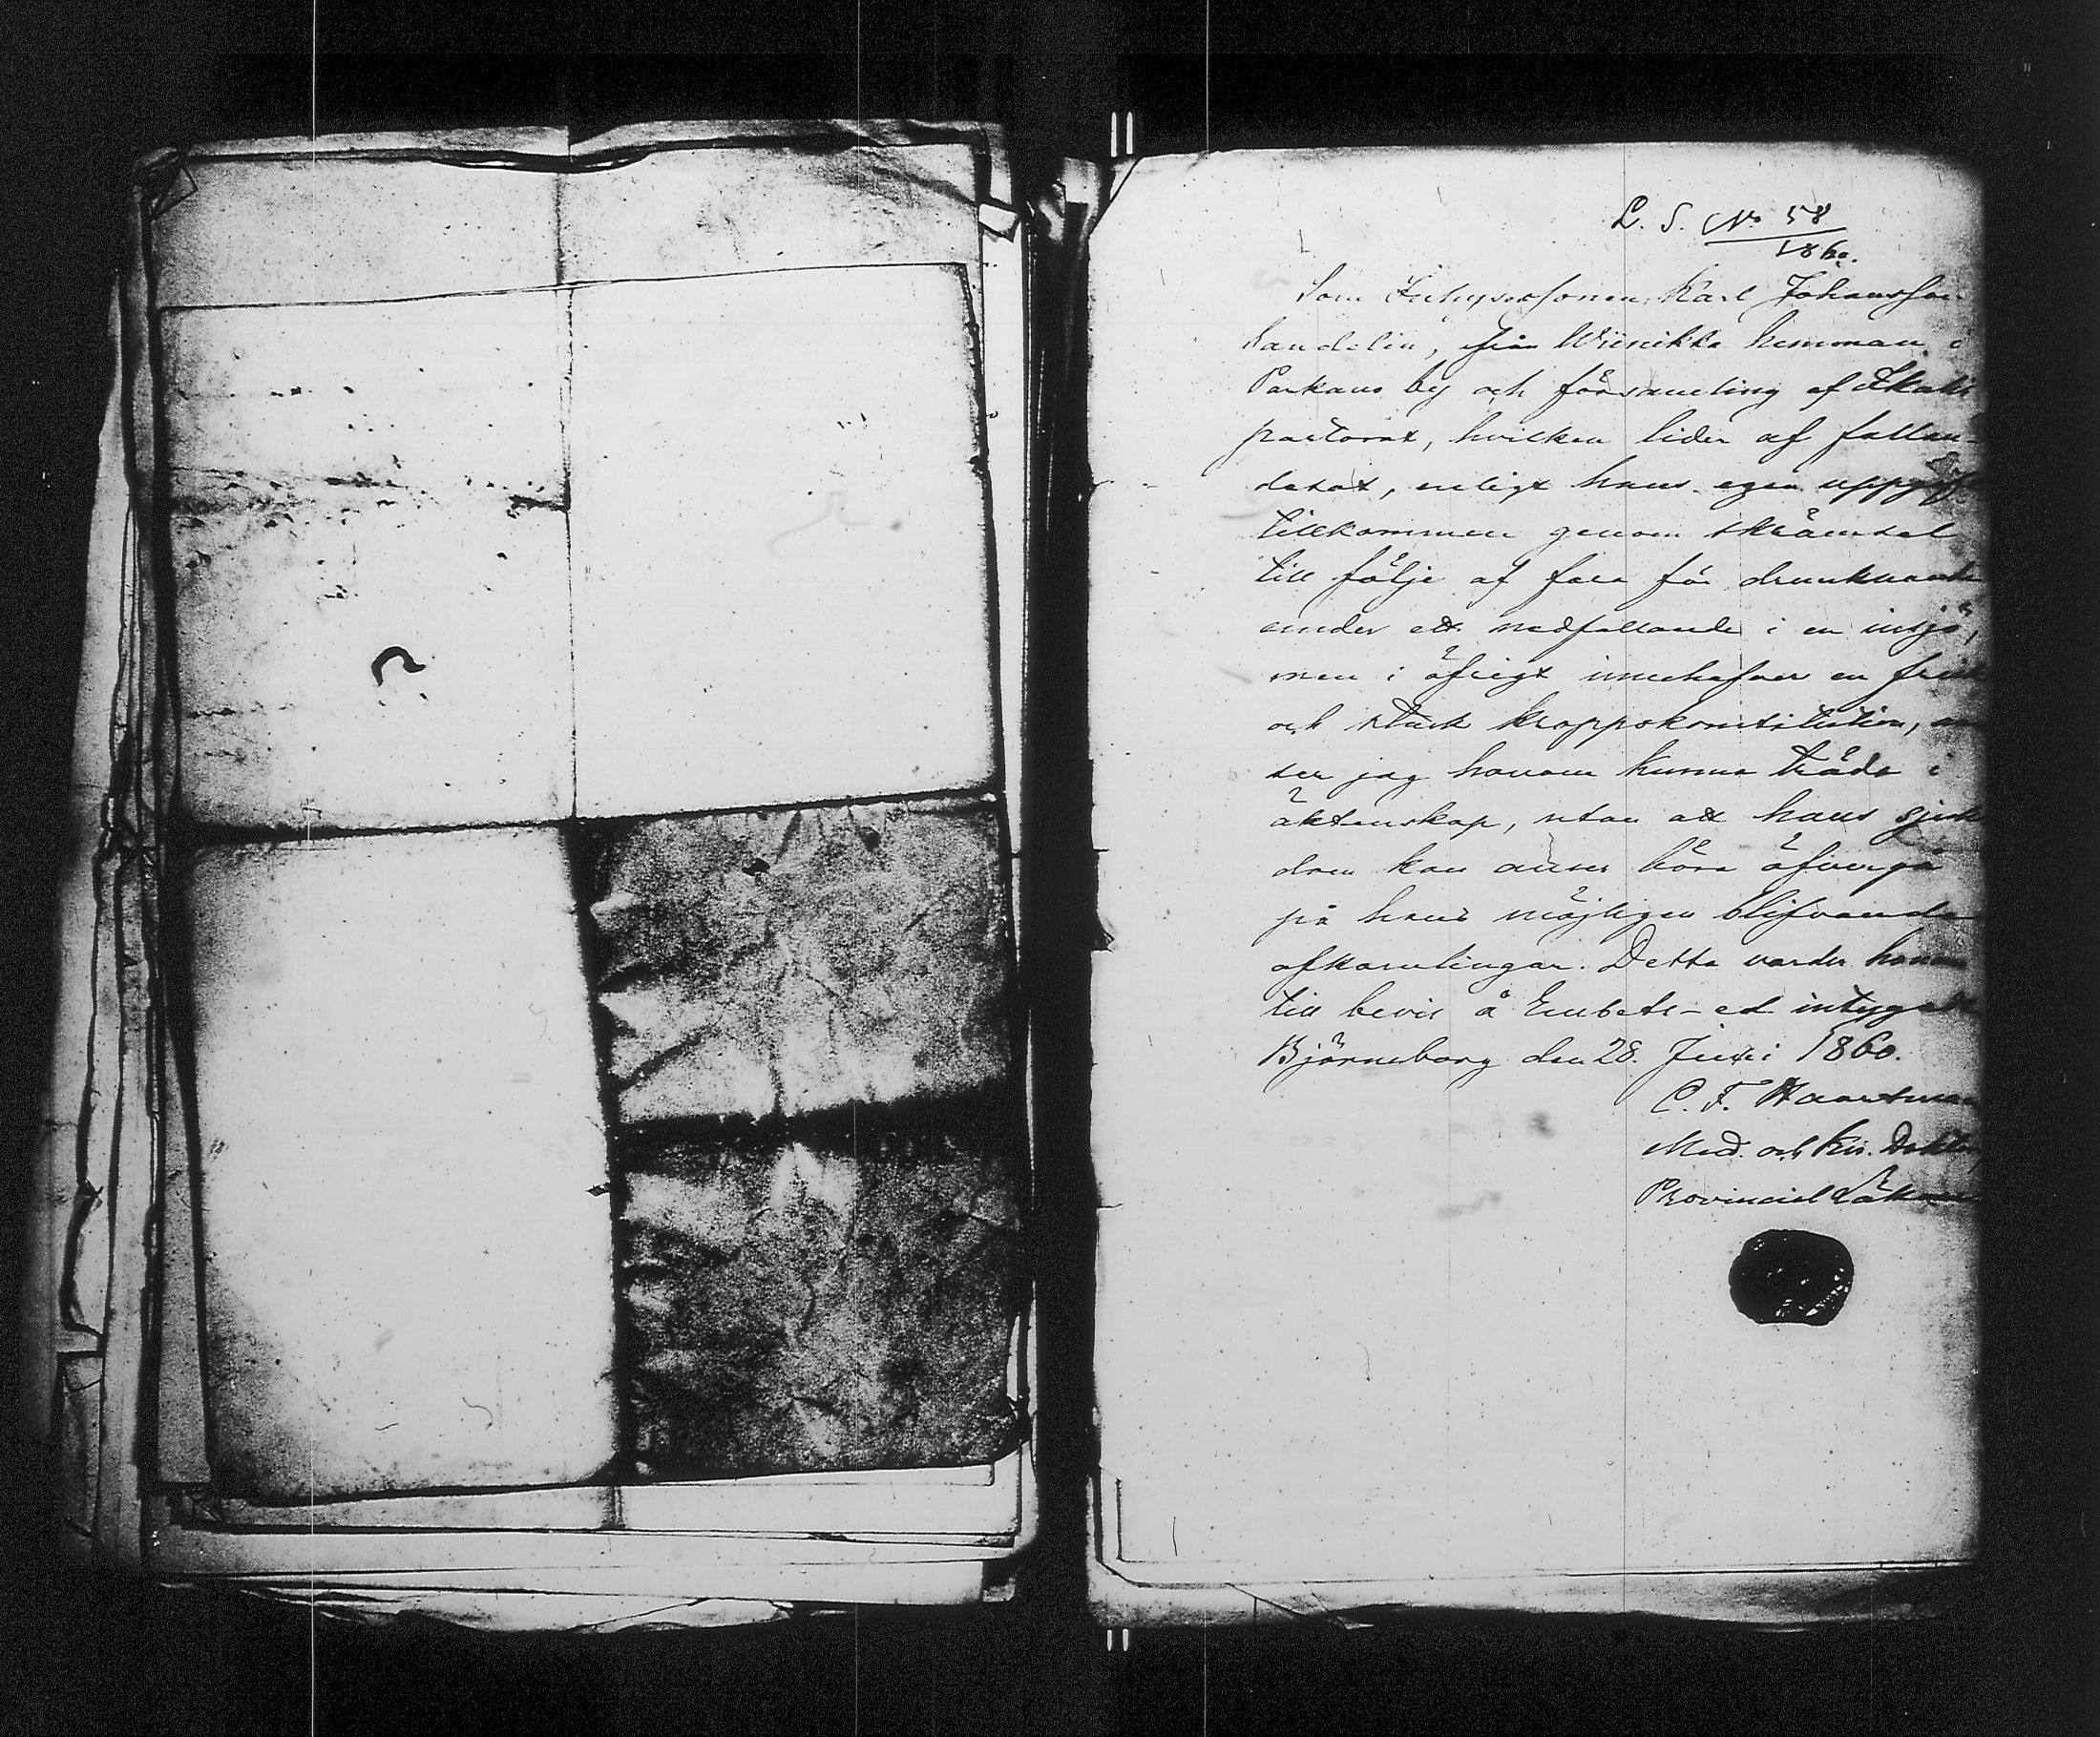 L. S. No 58
1860.
Som Inhysessonen Karl Johansson
Sandelin, från Wiinikka hemman i
Parkano by och församling af Ikalis
pastorat, hvilken lider af fallan-
desot, enligt hans egen uppgift
tillkommen genom skrämsel
till följe af fara för drunknande
under ett nedfallande i en insjö,
men i öfrigt innehafver en frisk
och stark kroppskonstitution, an
ser jag honom kunna träda i
äktenskap, utan att hans sjuk
dom kan anses böra öfvergå
på hans möjligen blifvande
afkomlingar. Detta varder honom
till bevis å Embets-ed intygadt
Björneborg den 28. Juni 1860.
C. F. Haartman
Med. och Kir. Doktor,
Provincial Läkare